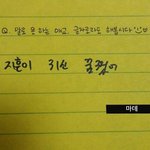 Q. 말로 못 하는 얘긴, 글자로라도 해봅시다
지훈이 귀신 꿈꿨어
마데